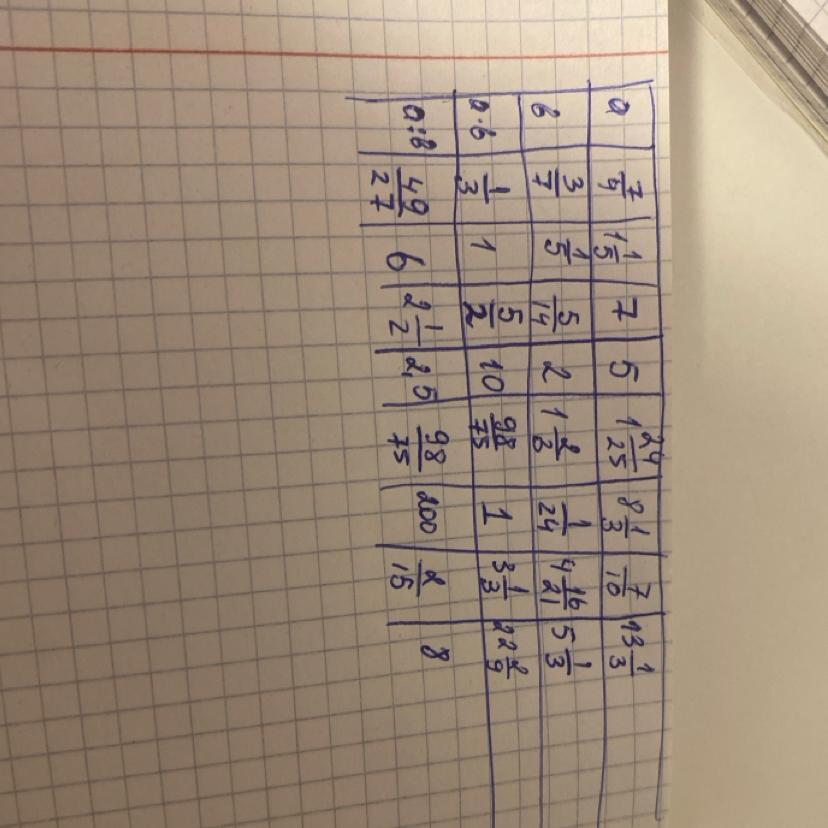 a 7/9 1 1/5 7 5 1 24/25 8 1/3 7/10 13 1/3
b 3/7 1/5 5/14 2 1 2/3 1/24 4 16/21 5 1/3
a·b 1/3 1 5/2 10 98/75 1 3 1/3 22 2/9
a:b 49/27 6 2 1/2 2,5 98/75 200 2/15 8